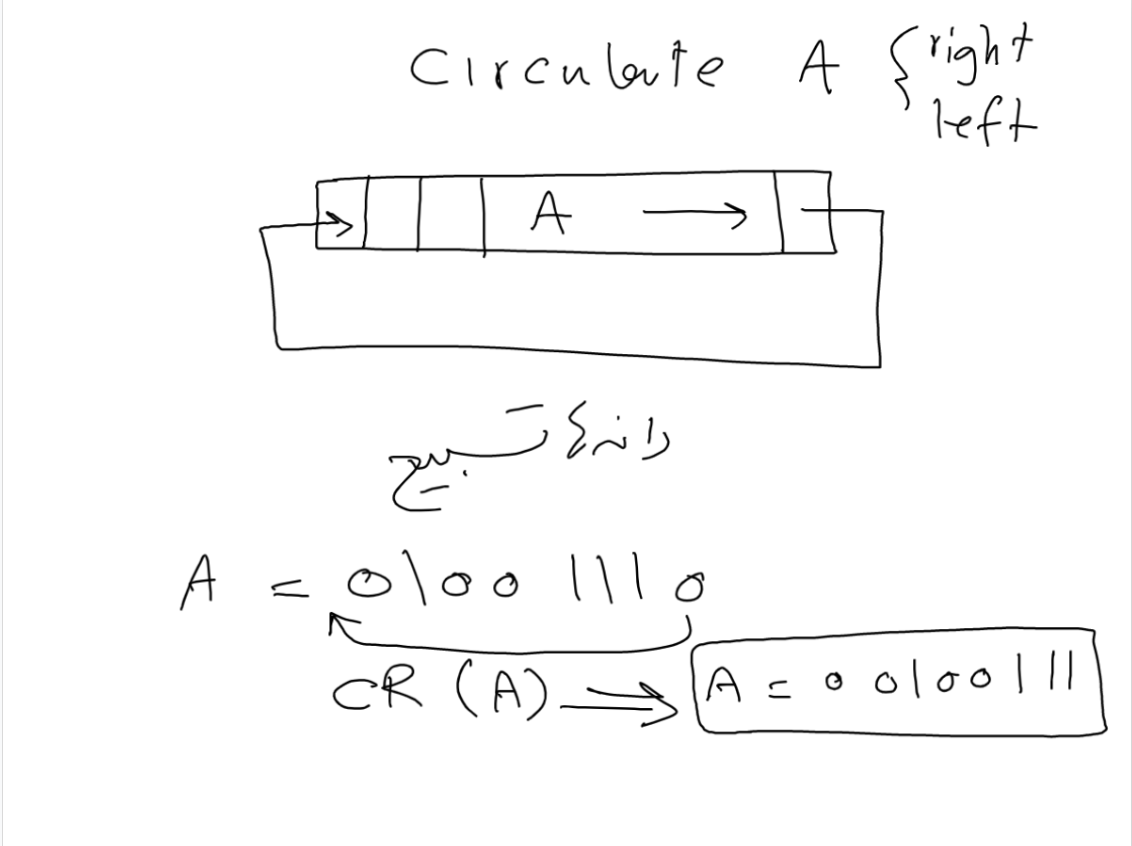 Circulate A { right
left
A
دانه‌ی تسبیح
A = 0100 1110
CR (A) ⇒ A = 00100111